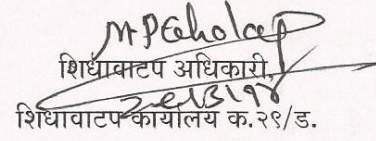 MPGholap
शिधावाटप अधिकारी,
शिधावाटप कार्यालय क.२९/ड.